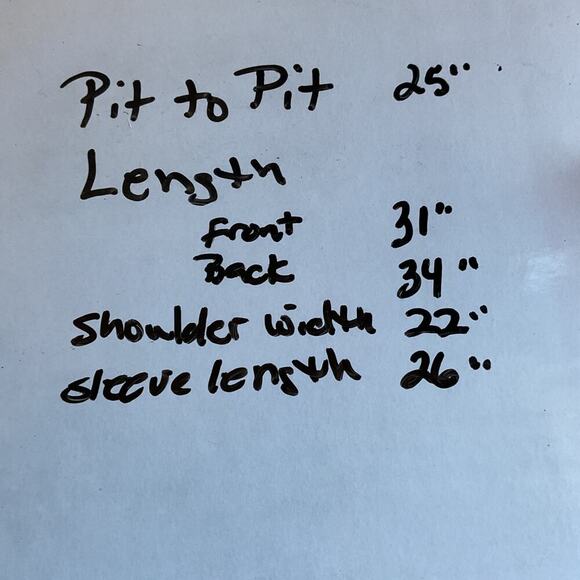 Pit to Pit 25"
Length
Front 31"
Back 34"
Shoulder width 22"
sleeve length 26"